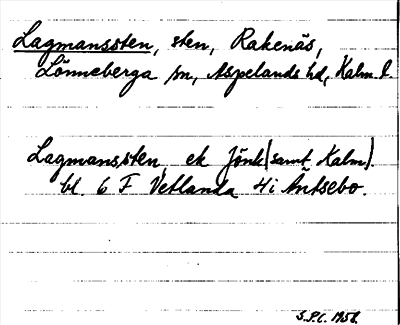 Lagmanssten, sten, Rakenäs,
Lönneberga sn, Aspelands hd, Kalm. l.
Lagmanssten, ek Jönk (samt Kalm).
bl. 6 F Vetlanda 4 i
S.P.C. 1958.